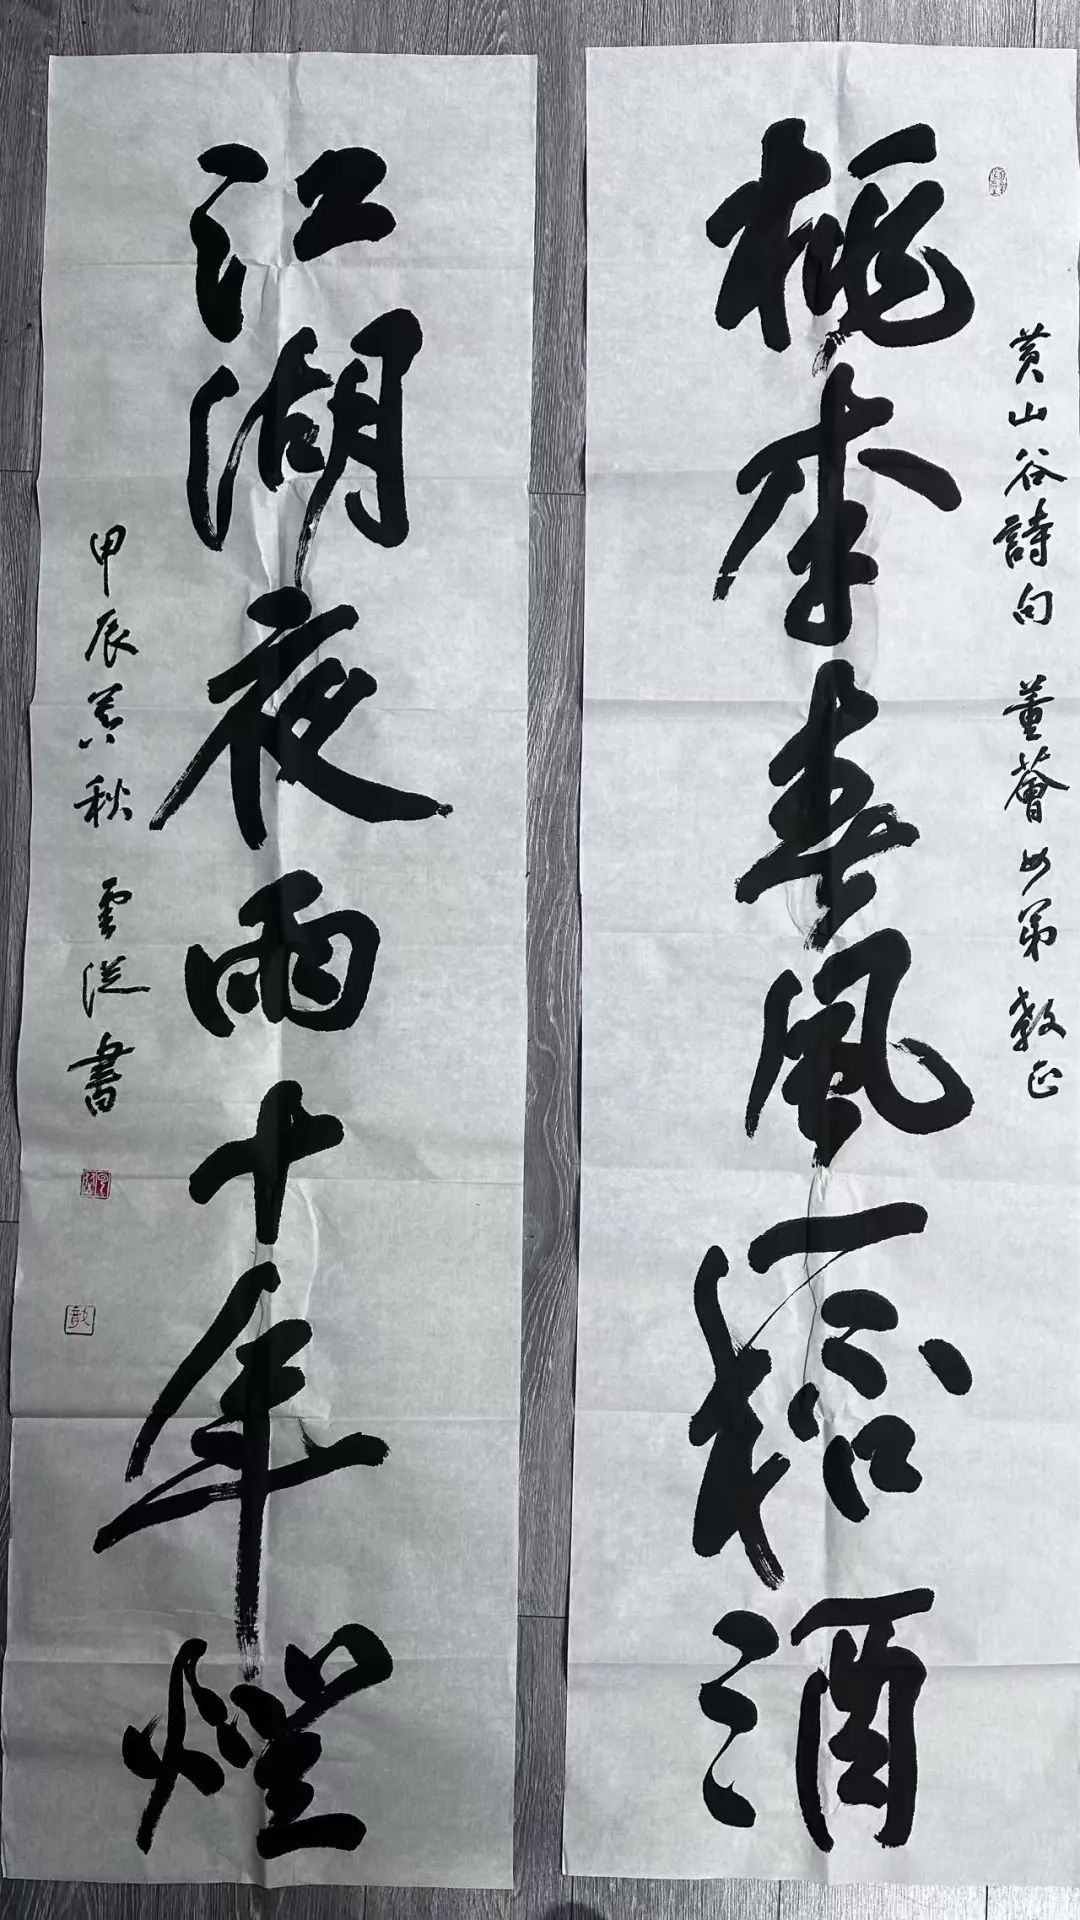 桃李春風一桮酒
黄山谷詩句 董薈女弟 教正
江湖夜雨十年燈
甲辰莫秋 雲從書